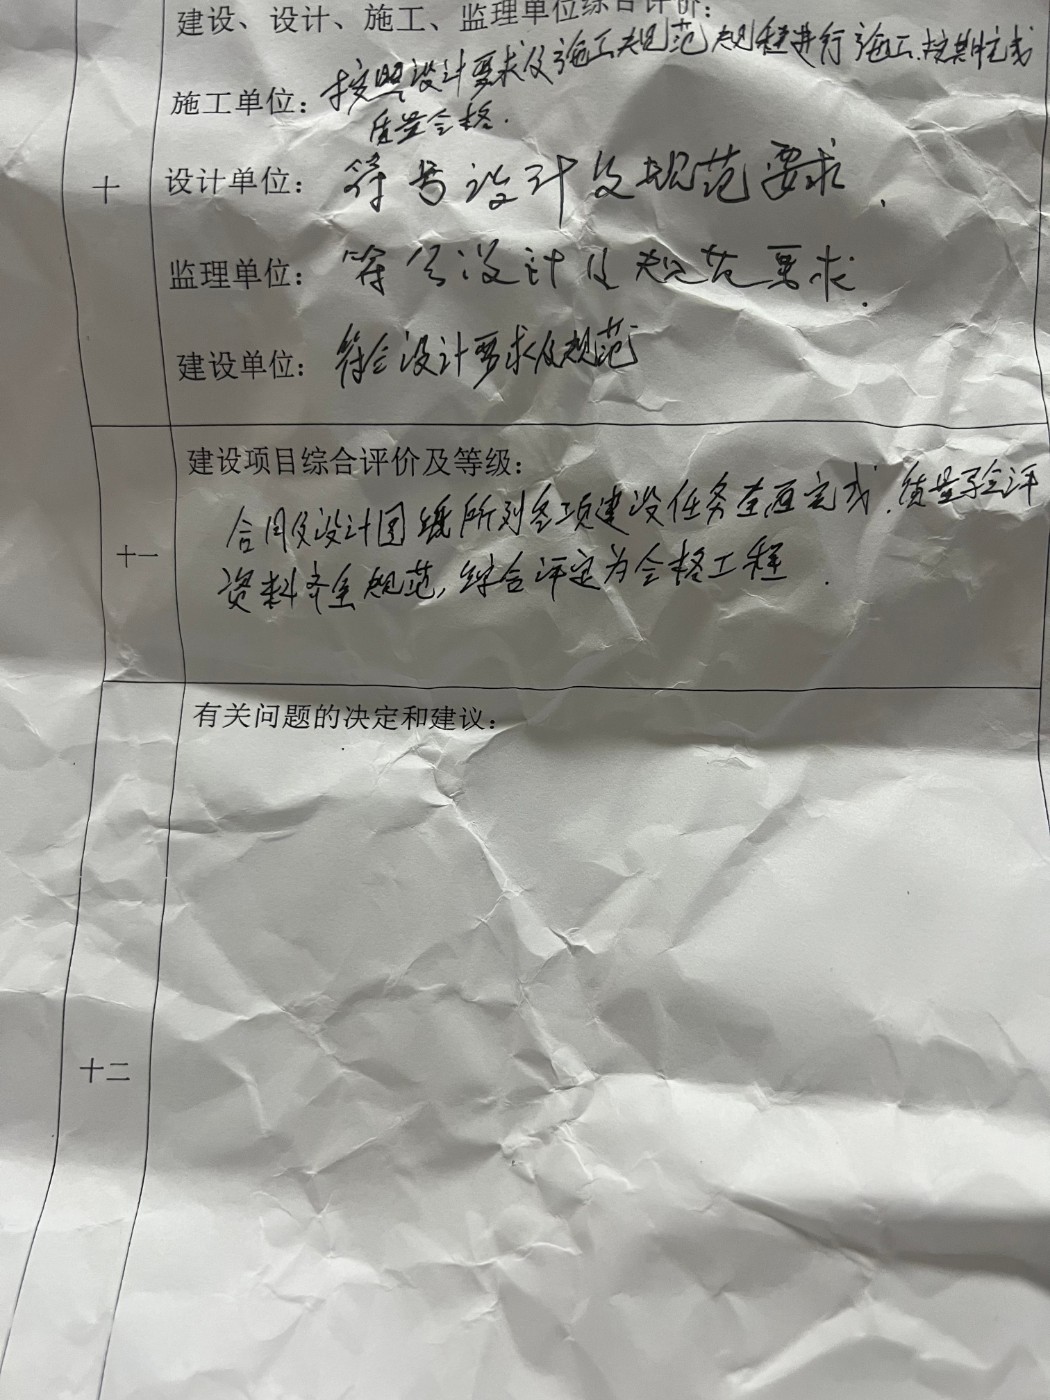 建设、设计、施工、监理单位综合评价：
施工单位：按照设计要求及施工规范规程进行施工.按期完成
质量合格.
十
设计单位：符号设计及规范要求.
监理单位：符合设计及规范要求.
建设单位：符合设计要求及规范
十一
建设项目综合评价及等级：
合同及设计图纸所列各项建设任务全面完成.质量验评
资料齐全规范,综合评定为合格工程.
十二
有关问题的决定和建议：